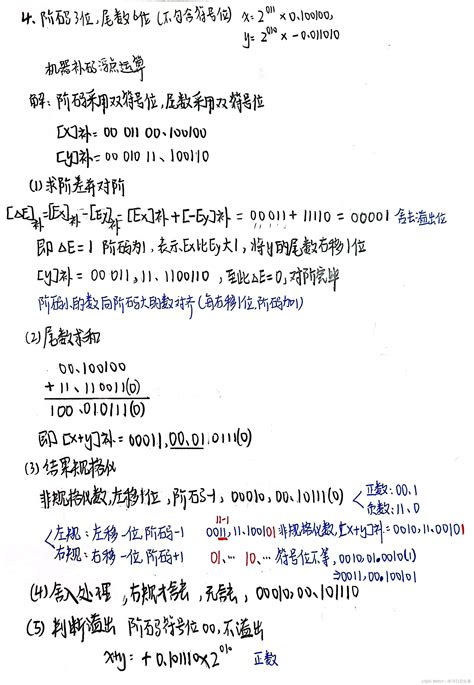 4. 阶码3位,尾数6位 (不包含符号位) x= 2^011 × 0.100100,
y= 2^010 × -0.011010
机器补码浮点运算
解: 阶码采用双符号位,尾数采用双符号位
[x]补= 00 011 00、100100
[y]补= 00 010 11、100110
(1) 求阶差并对阶
[ΔE]补=[Ex]补-[Ey]补=[Ex]补+[-Ey]补= 00011+11110 = 00001 舍去溢出位
即 ΔE=1 阶码为1,表示Ex比Ey大1,将y的尾数右移1位
[y]补= 00 011,11、1100110 ,至此ΔE=0,对阶完毕
阶码小的数向阶码大的数对齐(每右移1位,阶码加1)
(2) 尾数求和
00.100100
+ 11、110011(0)
100 .010111(0)
即 [x+y]补= 00011,00.01 0111(0)
(3) 结果规格化
非规格化数,左移1位,阶码-1, 00010,00.10111(0) 正数:00.1
负数:11、0
11-1
左规: 左移一位,阶码-1 0011,11.100101 非规格化数,[x+y]补=0010,11.00101
右规: 右移一位,阶码+1 01.… 10.… 符号位不等, 0010,01.0010(1)
⇒0011,00.100101
(4) 舍入处理 ,右规才舍去,无舍去, 00010,00、101110
(5) 判断溢出 阶码符号位00,不溢出
x+y= +0.101110×2^010 正数